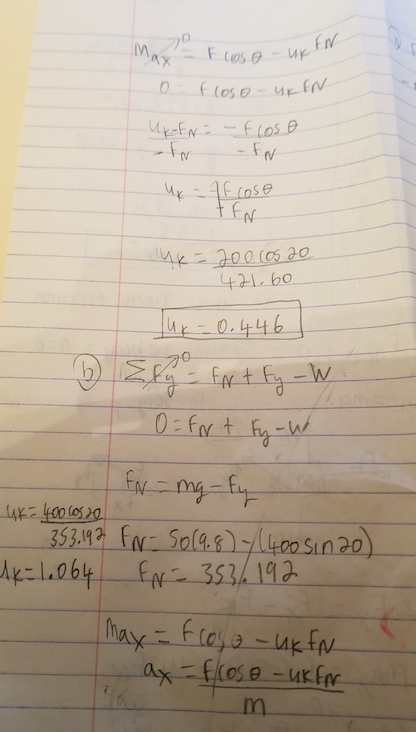 max→0 = Fcosθ - ukFN
0 = Fcosθ - ukFN
uk-FN/-FN = -Fcosθ/-FN
uk = +Fcosθ/+FN
uk = 200cos20/421.60
uk = 0.446
b) ΣFy→0 = FN + Fy - W
0 = FN + Fy - W
FN = mg - Fy
uk = 400cos20/353.192
FN = 50(9.8) - (400sin20)
uk = 1.064
FN = 353.192
max = Fcosθ - ukFN
ax = Fcosθ - ukFN/m